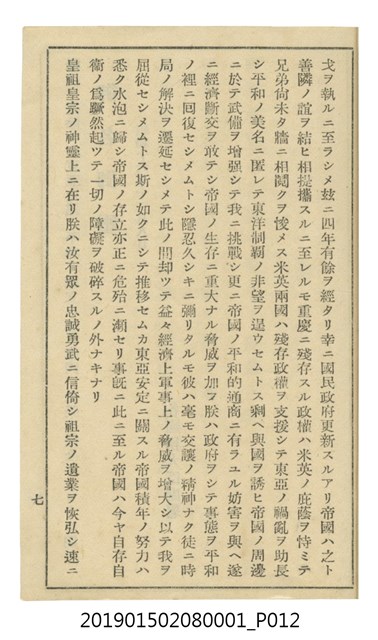 戈ヲ執ルニ至ラシメ玆ニ四年有餘ヲ經タリ幸ニ國民政府更新スルアリ帝國ハ之ト
善隣ノ誼ヲ結ヒ相提攜スルニ至レルモ重慶ニ殘存スル政權ハ米英ノ庇蔭ヲ恃ミテ
兄弟尚未タ牆ニ相鬩クヲ悛メス米英兩國ハ殘存政權ヲ支援シテ東亞ノ禍亂ヲ助長
シ平和ノ美名ニ匿レテ東洋制覇ノ非望ヲ逞ウセムトス剩ヘ與國ヲ誘ヒ帝國ノ周邊
ニ於テ武備ヲ增强シテ我ニ挑戰シ更ニ帝國ノ平和的通商ニ有ラユル妨害ヲ與ヘ遂
ニ經濟斷交ヲ敢テシ帝國ノ生存ニ重大ナル脅威ヲ加フ朕ハ政府ヲシテ事態ヲ平和
ノ裡ニ回復セシメムトシ隱忍久シキニ彌リタルモ彼ハ毫モ交讓ノ精神ナク徒ニ時
局ノ解決ヲ遷延セシメテ此ノ間却ツテ益々經濟上軍事上ノ脅威ヲ增大シ以テ我ヲ
屈從セシメムトス斯ノ如クニシテ推移セムカ東亞安定ニ關スル帝國積年ノ努力ハ
悉ク水泡ニ歸シ帝國ノ存立亦正ニ危殆ニ瀕セリ事旣ニ此ニ至ル帝國ハ今ヤ自存自
衞ノ爲蹶然起ツテ一切ノ障礙ヲ破碎スルノ外ナキナリ
皇祖皇宗ノ神靈上ニ在リ朕ハ汝有眾ノ忠誠勇武ニ信倚シ祖宗ノ遺業ヲ恢弘シ速ニ
七
201901502080001_P012